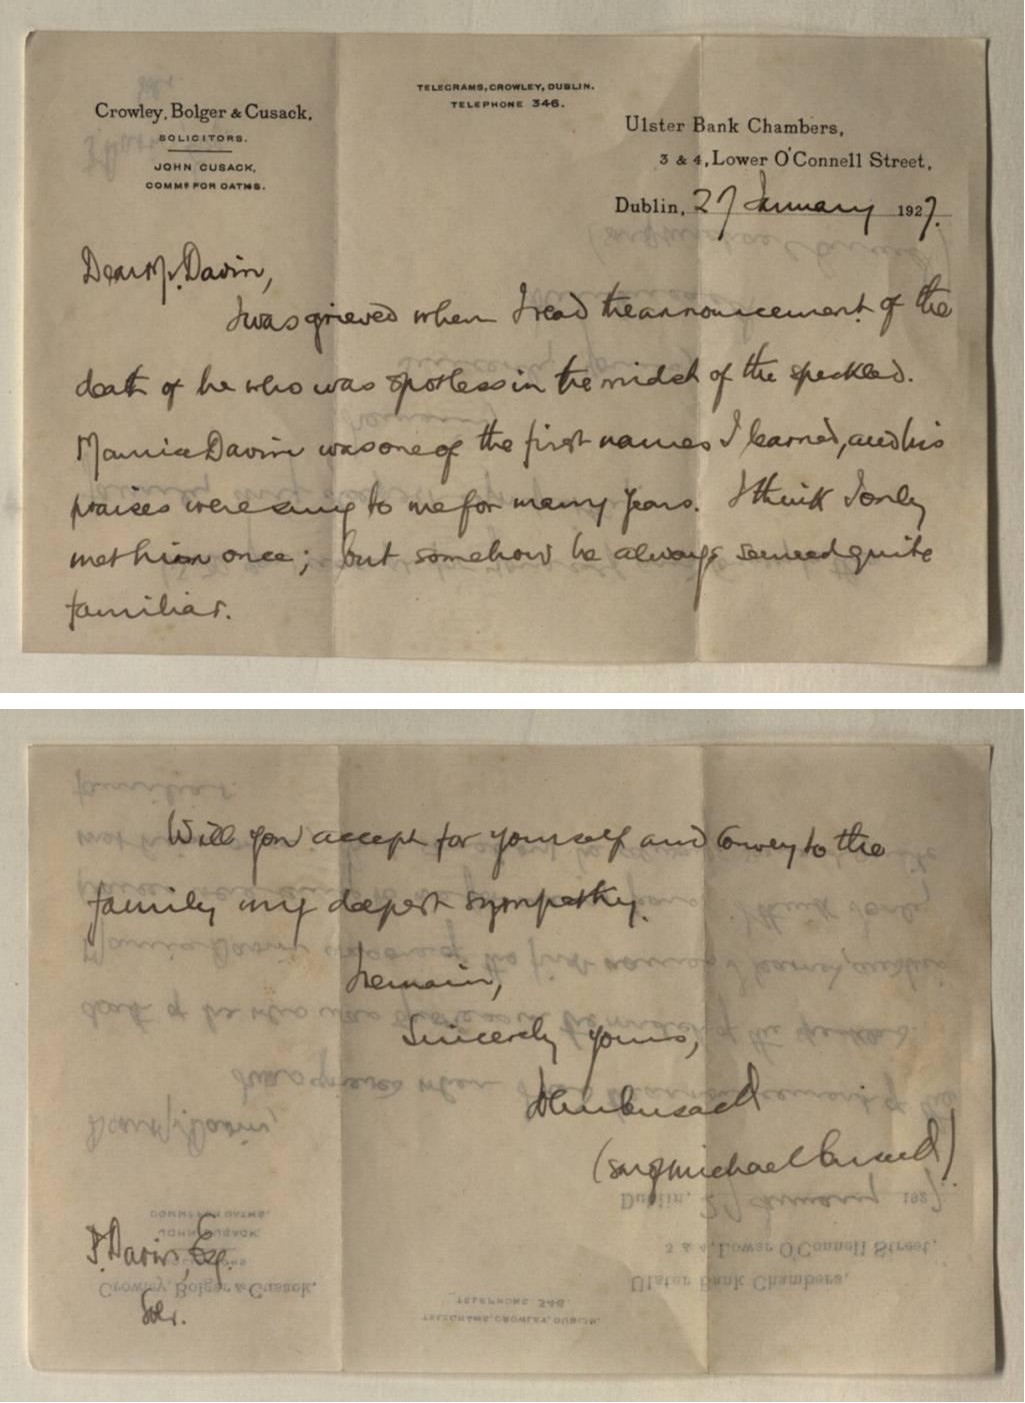 Crowley, Bolger & Cusack,
SOLICITORS.
JOHN CUSACK,
COMMR FOR OATHS.
TELEGRAMS, CROWLEY, DUBLIN.
TELEPHONE 346.
Ulster Bank Chambers,
3 & 4, Lower O'Connell Street,
Dublin, 27 January 1927.
Dear Mr. Davin,
I was grieved when I read the announcement of the
death of he who was spotless in the midst of the speckled.
Maurice Davin was one of the first names I learned, and his
praises were sung to me for many years. I think I only
met him once; but somehow he always seemed quite
familiar.
Will you accept for yourself and convey to the
family my deepest sympathy.
I remain,
Sincerely yours,
John Cusack
(son of Michael Cusack)
P. Davin, Esq.
Solr.